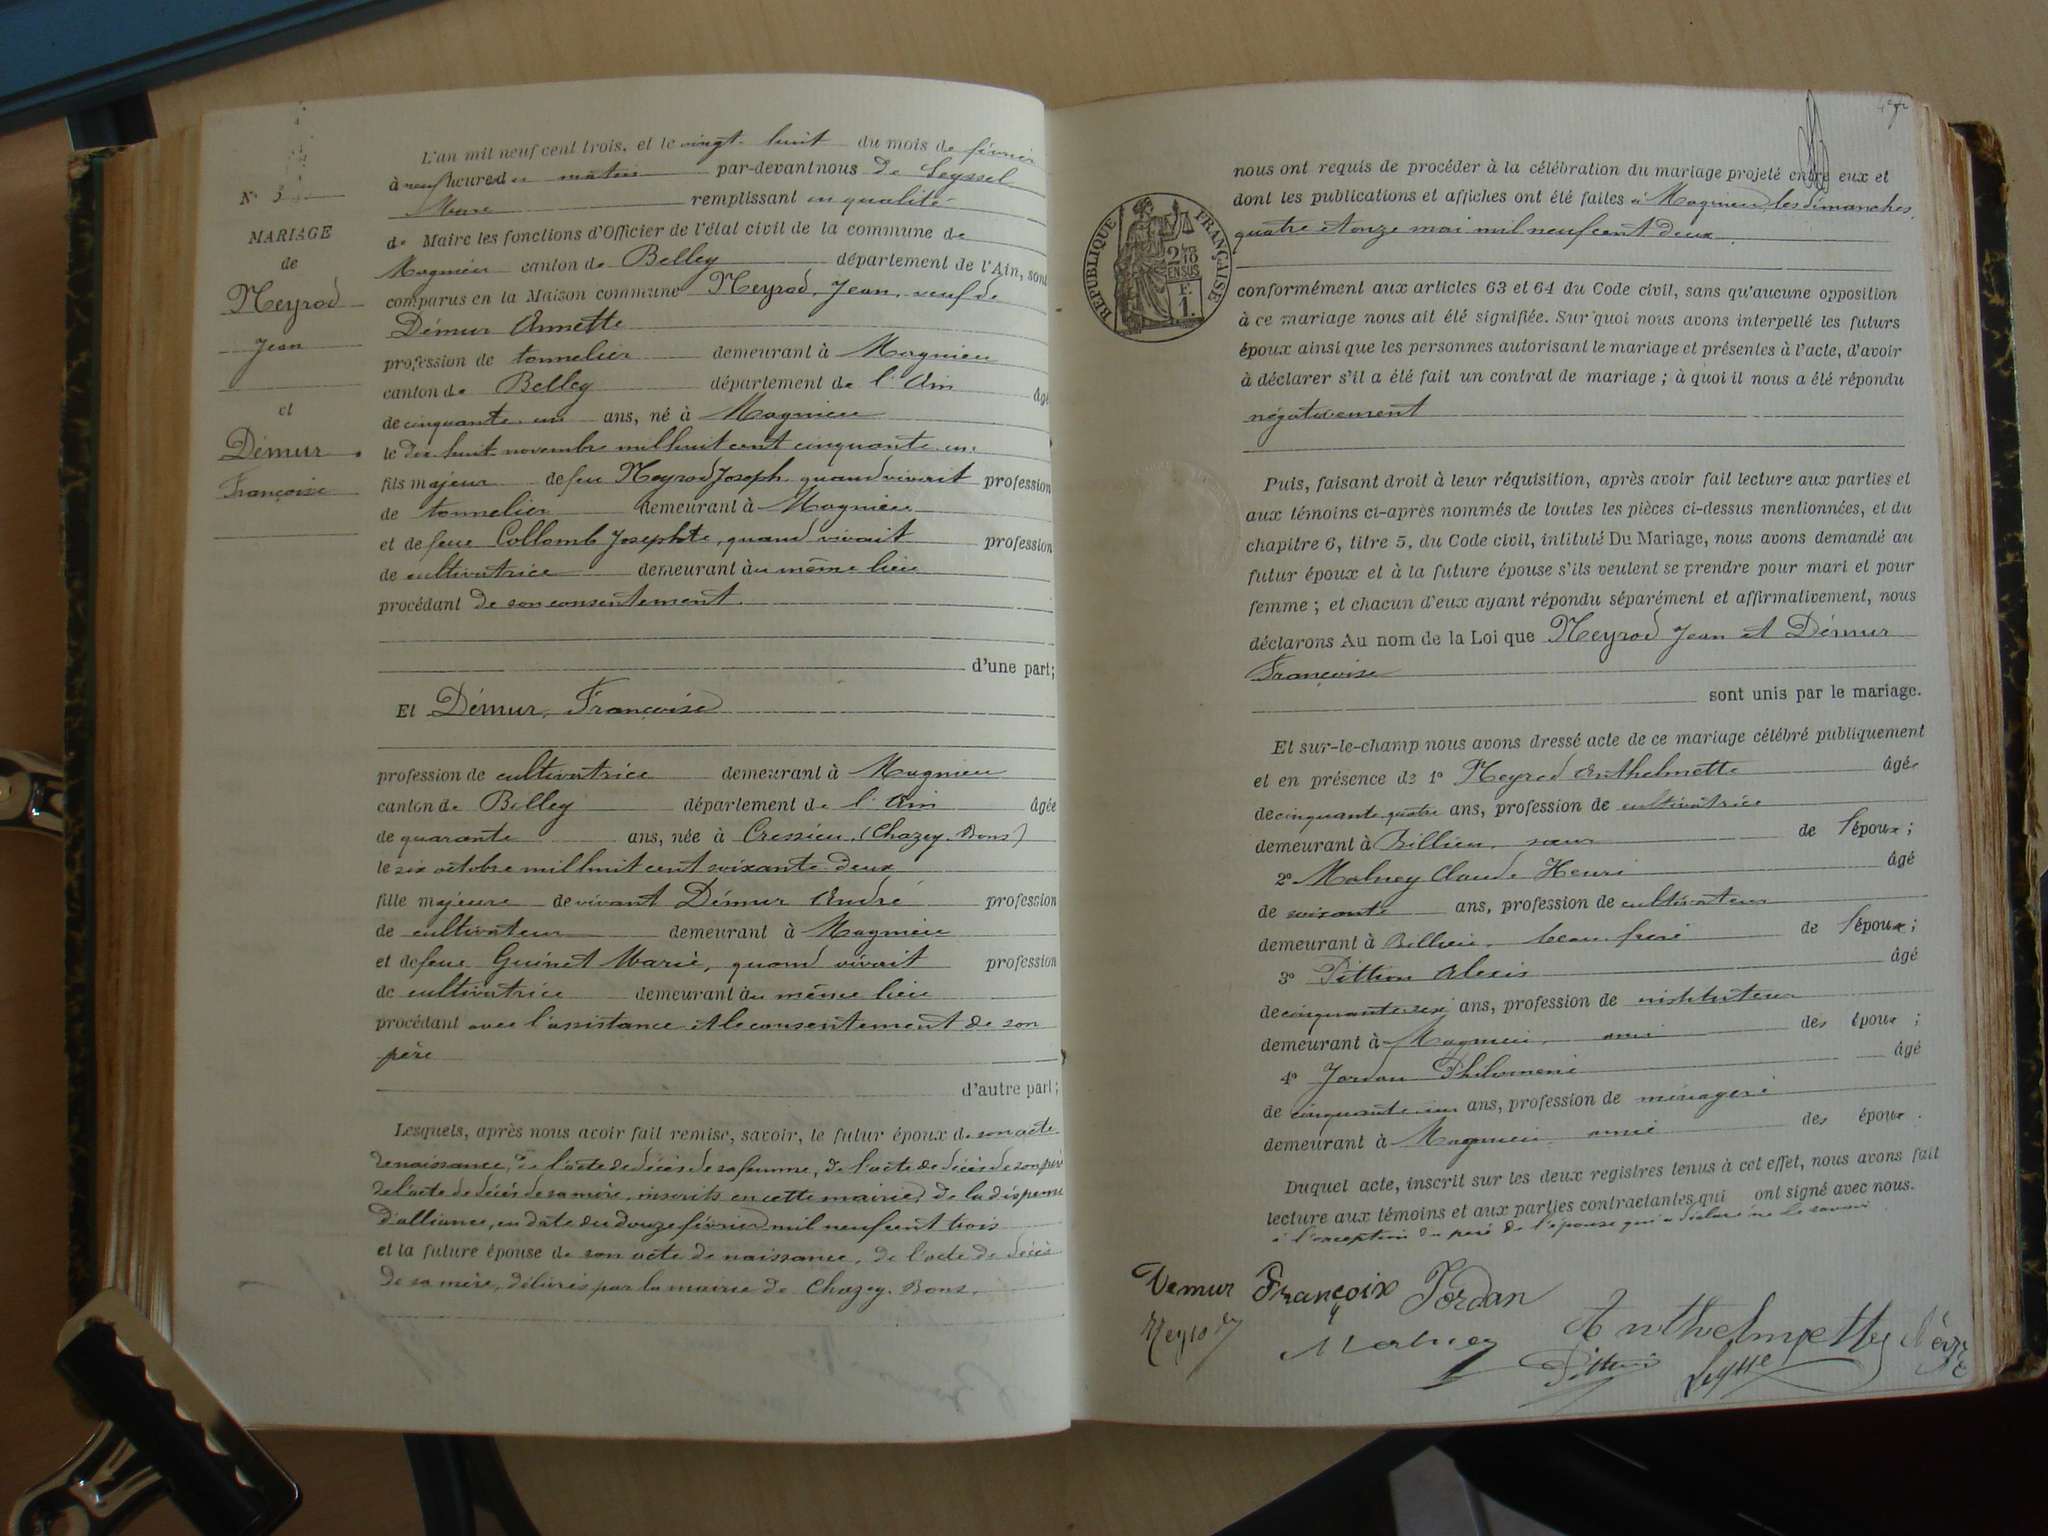 N° 3
MARIAGE
de
Neyrod
Jean
et
Démur
Françoise
L'an mil neuf cent trois, et le vingt-huit du mois de février
à neuf heures du matin par-devant nous de Seyssel
Maire remplissant en qualité
de Maire les fonctions d'Officier de l'état civil de la commune de
Magnieu canton de Belley département de l'Ain, sont
comparus en la Maison commune Neyrod, Jean, veuf de
Démur Annette
profession de tonnelier demeurant à Magnieu
canton de Belley département de l'Ain âgé
de cinquante un ans, né à Magnieu
le dix-huit novembre mil huit cent cinquante un
fils majeur de feu Neyrod Joseph quand vivait profession
de tonnelier demeurant à Magnieu
et de feue Collomb Josephte, quand vivait profession
de cultivatrice demeurant au même lieu
procédant de son consentement
d'une part;
Et Démur, Françoise
profession de cultivatrice demeurant à Magnieu
canton de Belley département de l'Ain âgée
de quarante ans, née à Cressieu (Chazey-Bons)
le six octobre mil huit cent soixante-deux
fille majeure de vivant Démur André profession
de cultivateur demeurant à Magnieu
et de feue Guinet Marie, quand vivait profession
de cultivatrice demeurant au même lieu
procédant avec l'assistance et le consentement de son
père
d'autre part;
Lesquels, après nous avoir fait remise, savoir, le futur époux de son acte
de naissance, de l'acte de décès de sa femme, de l'acte de décès de son père
de l'acte de décès de sa mère, inscrits en cette mairie, de la dispense
d'alliance, en date du douze février mil neuf cent trois
et la future épouse de son acte de naissance, de l'acte de décès
de sa mère, délivrés par la mairie de Chazey-Bons.
nous ont requis de procéder à la célébration du mariage projeté entre eux et
dont les publications et affiches ont été faites à Magnieu, les dimanches
quatre et onze mai mil neuf cent deux
RÉPUBLIQUE FRANÇAISE
2/10
EN SUS
F.
1.
conformément aux articles 63 et 64 du Code civil, sans qu'aucune opposition
à ce mariage nous ait été signifiée. Sur quoi nous avons interpellé les futurs
époux ainsi que les personnes autorisant le mariage et présentes à l'acte, d'avoir
à déclarer s'il a été fait un contrat de mariage; à quoi il nous a été répondu
négativement
Puis, faisant droit à leur réquisition, après avoir fait lecture aux parties et
aux témoins ci-après nommés de toutes les pièces ci-dessus mentionnées, et du
chapitre 6, titre 5, du Code civil, intitulé Du Mariage, nous avons demandé au
futur époux et à la future épouse s'ils veulent se prendre pour mari et pour
femme; et chacun d'eux ayant répondu séparément et affirmativement, nous
déclarons Au nom de la Loi que Neyrod Jean et Démur
Françoise
sont unis par le mariage.
Et sur-le-champ nous avons dressé acte de ce mariage célébré publiquement
et en présence de 1° Neyrod Anthelmette âgée
de cinquante quatre ans, profession de cultivatrice
demeurant à Billieu, sœur de l'époux;
2° Malney Claude Henri âgé
de soixante ans, profession de cultivateur
demeurant à Billieu, beau-frère de l'époux;
3° Pittion Alexis âgé
de cinquante six ans, profession de instituteur
demeurant à Magnieu, ami des époux;
4° Jordan Philomène âgé
de cinquante un ans, profession de ménagère
demeurant à Magnieu amie des époux.
Duquel acte, inscrit sur les deux registres tenus à cet effet, nous avons fait
lecture aux témoins et aux parties contractantes qui ont signé avec nous.
à l'exception du père de l'épouse qui a déclaré ne le savoir
Demur Françoix Jordan
Neyrod Malney Anthelmette
Pittion